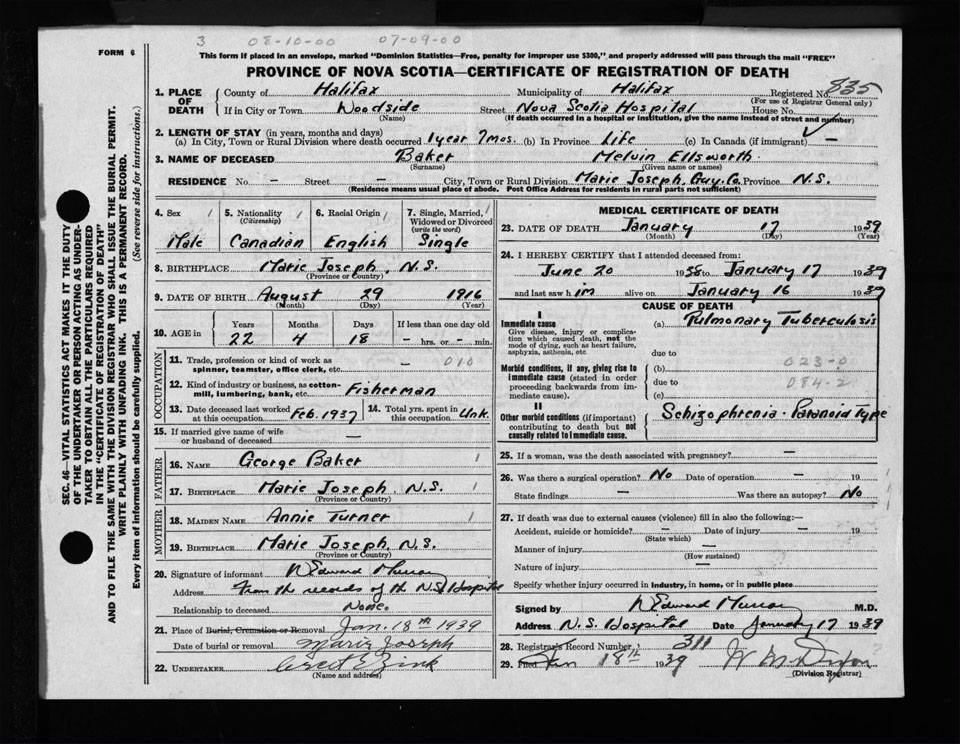 3 08-10-00 07-09-00
FORM 6
This form if placed in an envelope, marked "Dominion Statistics—Free, penalty for improper use $300," and properly addressed will pass through the mail "FREE"
PROVINCE OF NOVA SCOTIA—CERTIFICATE OF REGISTRATION OF DEATH
SEC. 46—VITAL STATISTICS ACT MAKES IT THE DUTY
OF THE UNDERTAKER OR PERSON ACTING AS UNDER-
TAKER TO OBTAIN ALL THE PARTICULARS REQUIRED
IN THE "CERTIFICATE OF REGISTRATION OF DEATH"
AND TO FILE THE SAME WITH THE DIVISION REGISTRAR WHO SHALL ISSUE THE BURIAL PERMIT.
WRITE PLAINLY WITH UNFADING INK. THIS IS A PERMANENT RECORD.
Every item of information should be carefully supplied. (See reverse side for instructions.)
1. PLACE OF DEATH County of Halifax Municipality of Halifax Registered No. 835
(For use of Registrar General only)
If in City or Town Woodside Street Nova Scotia Hospital House No.
(Name) (If death occurred in a hospital or institution, give the name instead of street and number)
2. LENGTH OF STAY (in years, months and days)
(a) In City, Town or Rural Division where death occurred 1 year 7 mos. (b) In Province Life (c) In Canada (if immigrant) —
3. NAME OF DECEASED Baker Melvin Ellsworth
(Surname) (Given name or names)
RESIDENCE No. — Street — City, Town or Rural Division Marie Joseph, Guy. Co. Province N.S.
(Residence means usual place of abode. Post Office Address for residents in rural parts not sufficient)
4. Sex 1 Male
5. Nationality 1 (Citizenship) Canadian
6. Racial Origin 1 English
7. Single, Married, 1 Widowed or Divorced (write the word) Single
8. BIRTHPLACE Marie Joseph, N.S.
(Province or Country)
9. DATE OF BIRTH August 29 1916
(Month) (Day) (Year)
10. AGE in Years Months Days If less than one day old
22 4 18 — hrs. or — min.
OCCUPATION
11. Trade, profession or kind of work as spinner, teamster, office clerk, etc. — 010
12. Kind of industry or business, as cotton-mill, lumbering, bank, etc. Fisherman
13. Date deceased last worked at this occupation Feb. 1937 14. Total yrs. spent in this occupation Unk.
15. If married give name of wife or husband of deceased —
FATHER
16. NAME George Baker 1
17. BIRTHPLACE Marie Joseph, N.S. 1
(Province or Country)
MOTHER
18. MAIDEN NAME Annie Turner 1
19. BIRTHPLACE Marie Joseph, N.S.
(Province or Country)
20. Signature of informant N Edward Murray
Address From the records of the N.S. Hospital
Relationship to deceased None.
21. Place of Burial, Cremation or Removal Jan. 18th 1939
Date of burial or removal Marie Joseph
22. UNDERTAKER Zink
(Name and address)
MEDICAL CERTIFICATE OF DEATH
23. DATE OF DEATH January 17 1939
(Month) (Day) (Year)
24. I HEREBY CERTIFY that I attended deceased from:
June 20 1938 to January 17 1939
and last saw him alive on January 16 1939
CAUSE OF DEATH
I
Immediate cause
Give disease, injury or complication which caused death, not the mode of dying, such as heart failure, asphyxia, asthenia, etc.
(a) Pulmonary Tuberculosis
due to
Morbid conditions, if any, giving rise to immediate cause (stated in order proceeding backwards from immediate cause).
(b) 023-0
due to 084-2
(c)
II
Other morbid conditions (if important) contributing to death but not causally related to immediate cause.
Schizophrenia - Paranoid Type
25. If a woman, was the death associated with pregnancy? —
26. Was there a surgical operation? No Date of operation — 19
State findings — Was there an autopsy? No
27. If death was due to external causes (violence) fill in also the following:—
Accident, suicide or homicide? — Date of injury — 19
(State which)
Manner of injury —
(How sustained)
Nature of injury —
Specify whether injury occurred in industry, in home, or in public place
Signed by N Edward Murray M.D.
Address N.S. Hospital Date January 17 1939
28. Registrar's Record Number 311
29. Filed Jan 18th 1939
(Division Registrar)